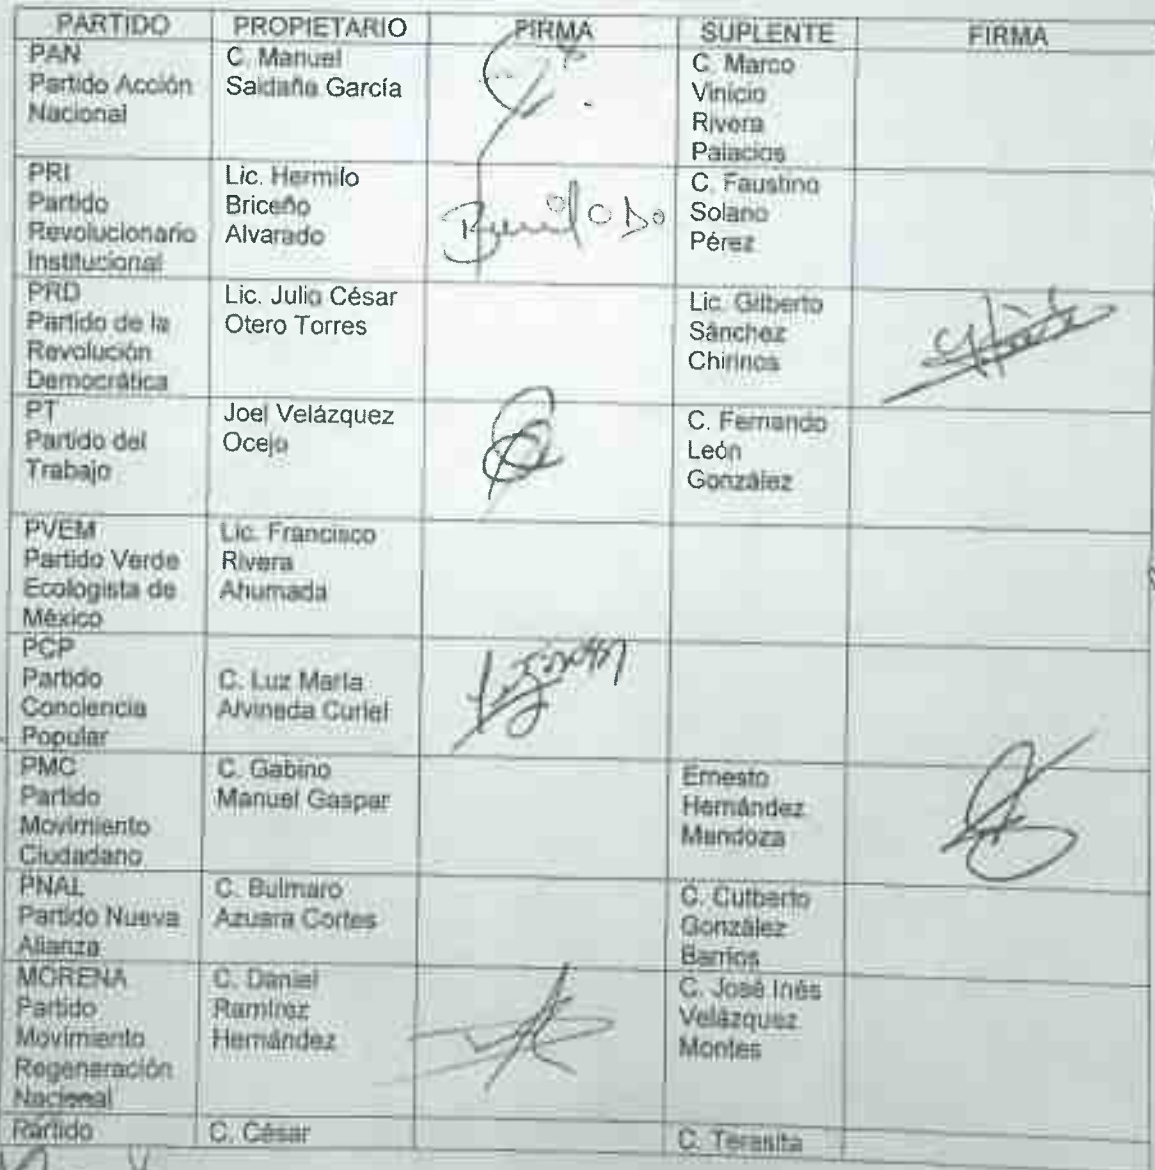 PARTIDO PROPIETARIO FIRMA SUPLENTE FIRMA
PAN
Partido Acción
Nacional
C. Manuel
Saldaña García
C. Marco
Vinicio
Rivera
Palacios
PRI
Partido
Revolucionario
Institucional
Lic. Hermilo
Briceño
Alvarado
C. Faustino
Solano
Pérez
PRD
Partido de la
Revolución
Democrática
Lic. Julio César
Otero Torres
Lic. Gilberto
Sánchez
Chirinos
PT
Partido del
Trabajo
Joel Velázquez
Ocejo
C. Fernando
León
González
PVEM
Partido Verde
Ecologista de
México
Lic. Francisco
Rivera
Ahumada
PCP
Partido
Conciencia
Popular
C. Luz María
Alvineda Curiel
PMC
Partido
Movimiento
Ciudadano
C. Gabino
Manuel Gaspar
Ernesto
Hernández
Mendoza
PNAL
Partido Nueva
Alianza
C. Bulmaro
Azuara Cortes
C. Cutberto
González
Barrios
MORENA
Partido
Movimiento
Regeneración
Nacional
C. Daniel
Ramírez
Hernández
C. José Inés
Velázquez
Montes
Partido
C. César
C. Teresita